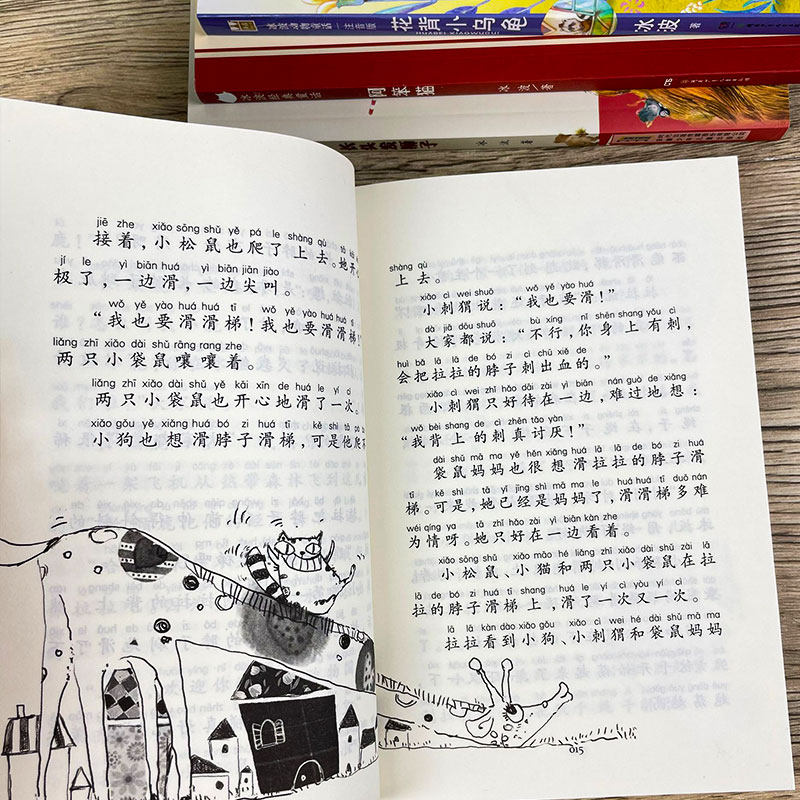 冰波动物童话 注音版
花背小乌龟
HUABEI XIAOWUGUI
冰波 著
冰波经典童话
阿笨猫
冰波/著
长头发狮子
冰波 著
jiē zhe xiǎo sōng shǔ yě pá le shàng qù
接着，小松鼠也爬了上去。她开心
jí le yì biān huá yì biān jiān jiào
极了，一边滑，一边尖叫。
wǒ yě yào huá huá tī wǒ yě yào huá huá tī
“我也要滑滑梯！我也要滑滑梯！”
liǎng zhī xiǎo dài shǔ rāng rang zhe
两只小袋鼠嚷嚷着。
liǎng zhī xiǎo dài shǔ yě kāi xīn de huá le yí cì
两只小袋鼠也开心地滑了一次。
xiǎo gǒu yě xiǎng huá bó zi huá tī kě shì tā pá
小狗也想滑脖子滑梯，可是他爬
shàng qù
上去。
xiǎo cì wei shuō wǒ yě yào huá
小刺猬说：“我也要滑！”
dà jiā dōu shuō bù xíng nǐ shēn shang yǒu cì
大家都说：“不行，你身上有刺，
huì bǎ lā lā de bó zi cì chū xiě de
会把拉拉的脖子刺出血的。”
xiǎo cì wei zhǐ hǎo dāi zài yì biān nán guò de xiǎng
小刺猬只好待在一边，难过地想：
wǒ bèi shang de cì zhēn tǎo yàn
“我背上的刺真讨厌！”
dài shǔ mā ma yě hěn xiǎng huá lā lā de bó zi huá
袋鼠妈妈也很想滑拉拉的脖子滑
tī kě shì tā yǐ jīng shì mā ma le huá huá tī duō nán
梯。可是，她已经是妈妈了，滑滑梯多难
wéi qíng ya tā zhǐ hǎo zài yì biān kàn zhe
为情呀。她只好在一边看着。
xiǎo sōng shǔ xiǎo māo hé liǎng zhī xiǎo dài shǔ zài lā
小松鼠、小猫和两只小袋鼠在拉
lā de bó zi huá tī shang huá le yí cì yòu yí cì
拉的脖子滑梯上，滑了一次又一次。
lā lā kàn dào xiǎo gǒu xiǎo cì wei hé dài shǔ mā ma
拉拉看到小狗、小刺猬和袋鼠妈妈
015